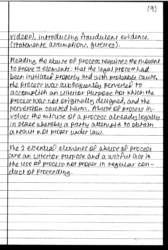 (9)
videos), introducing fraudulent evidence
(statements, assumptions, guesses).
Pleading the abuse of process requires the movant
to prove 3 elements: that the legal process had
been initiated properly and with probable cause,
the process was subsequently perverted to
accomplish an ulterior purpose for which the
process was not originally designed, and the
perversion caused harm. Abuse of process in-
volves the misuse of a process already legally
in place whereby a party attempts to obtain
a result not proper under law.
The 2 essential elements of abuse of process
are an ulterior purpose and a willful act in
the use of process not proper in regular con-
duct of proceeding.